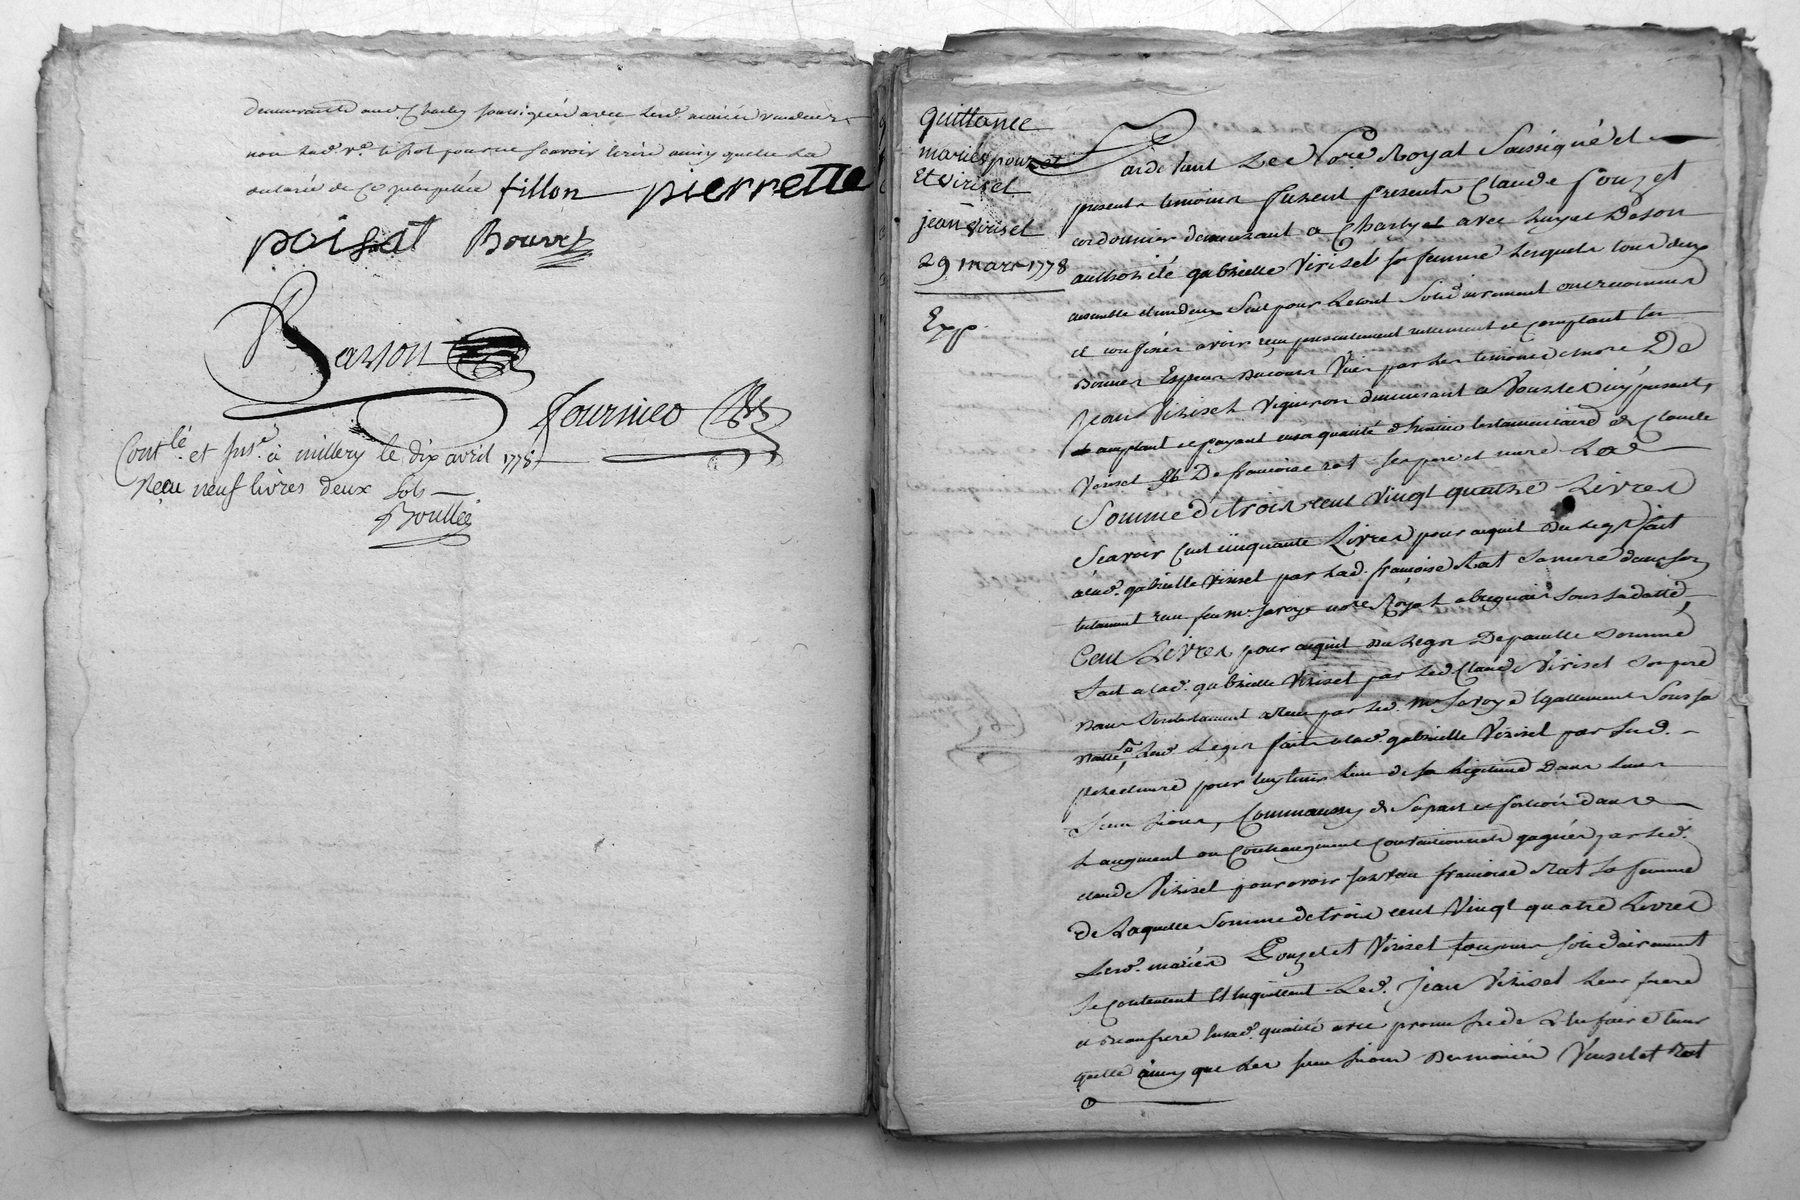 demeurante aud. Charly soussignée avec lesd. mariés vendeurs
non lad. ve. tisot pour ne scavoir écrire ainsy quelle la
déclaré de ce interpellée fillon pierrette
poisat Bouvet
Basson
fournieo
Contlé. et Insé. à millery le dix avril 1778
Reçu neuf livres deux sols
Boullée
quittance
mariés pouzet
et Viriset
jean Viriset
29 mars 1778
Exp.
Pardevant Le Nore. Royal Soussigné et
presents temoins furent presents Claude Pouzet
cordonnier demeurant a Charly et avec luy et de son
authorité gabrielle Viriset sa femme lesquels tous deux
ensemble et un deux seul pour le tout solidairement ont reconnu
et confessé avoir reçu presentement réellement et comptant en
Bonnes Especes du cours Vües par les temoins et nore De
Jean Viriset Vigneron demeurant a Vourles icy present,
acceptant et payant en sa qualité d'heritier testamentaire de Claude
Viriset et De francoise rat ses pere et mere La
Somme de trois cent vingt quatre Livres
Scavoir Cent cinquante Livres pour acquit du legs fait
a lad. gabrielle Viriset par lad. francoise Rat sa mere dans son
testament reçu feu me. Savoye nore Royal a brignais sous sa datte,
Cent Livres pour acquit du legs De pareille somme
fait a lad. gabrielle Viriset par led. Claude Viriset son pere
dans son testament a Reçu par led. me Savoye Egallement sous sa
datte, lesd. Legs faits a lad. gabrielle Viriset par sesd.
pere et mere pour luy tenir lieu de sa légitime dans leurs
successions, Comme aussy de sa part et portion dans
L'augment ou Contraugment Conventionnels gagnés par led.
claude Viriset pour avoir survécu francoise Rat sa femme
de Laquelle somme de trois cent Vingt quatre Livres
Lesd. mariés Pouzet et Viriset toujours solidairement
se contentent et en quittent Led. Jean Viriset leur frere
et beaufrere en sad. qualité avec promesse de l'en faire tenir
quitte ainsy que les successions des mariés Viriset et Rat